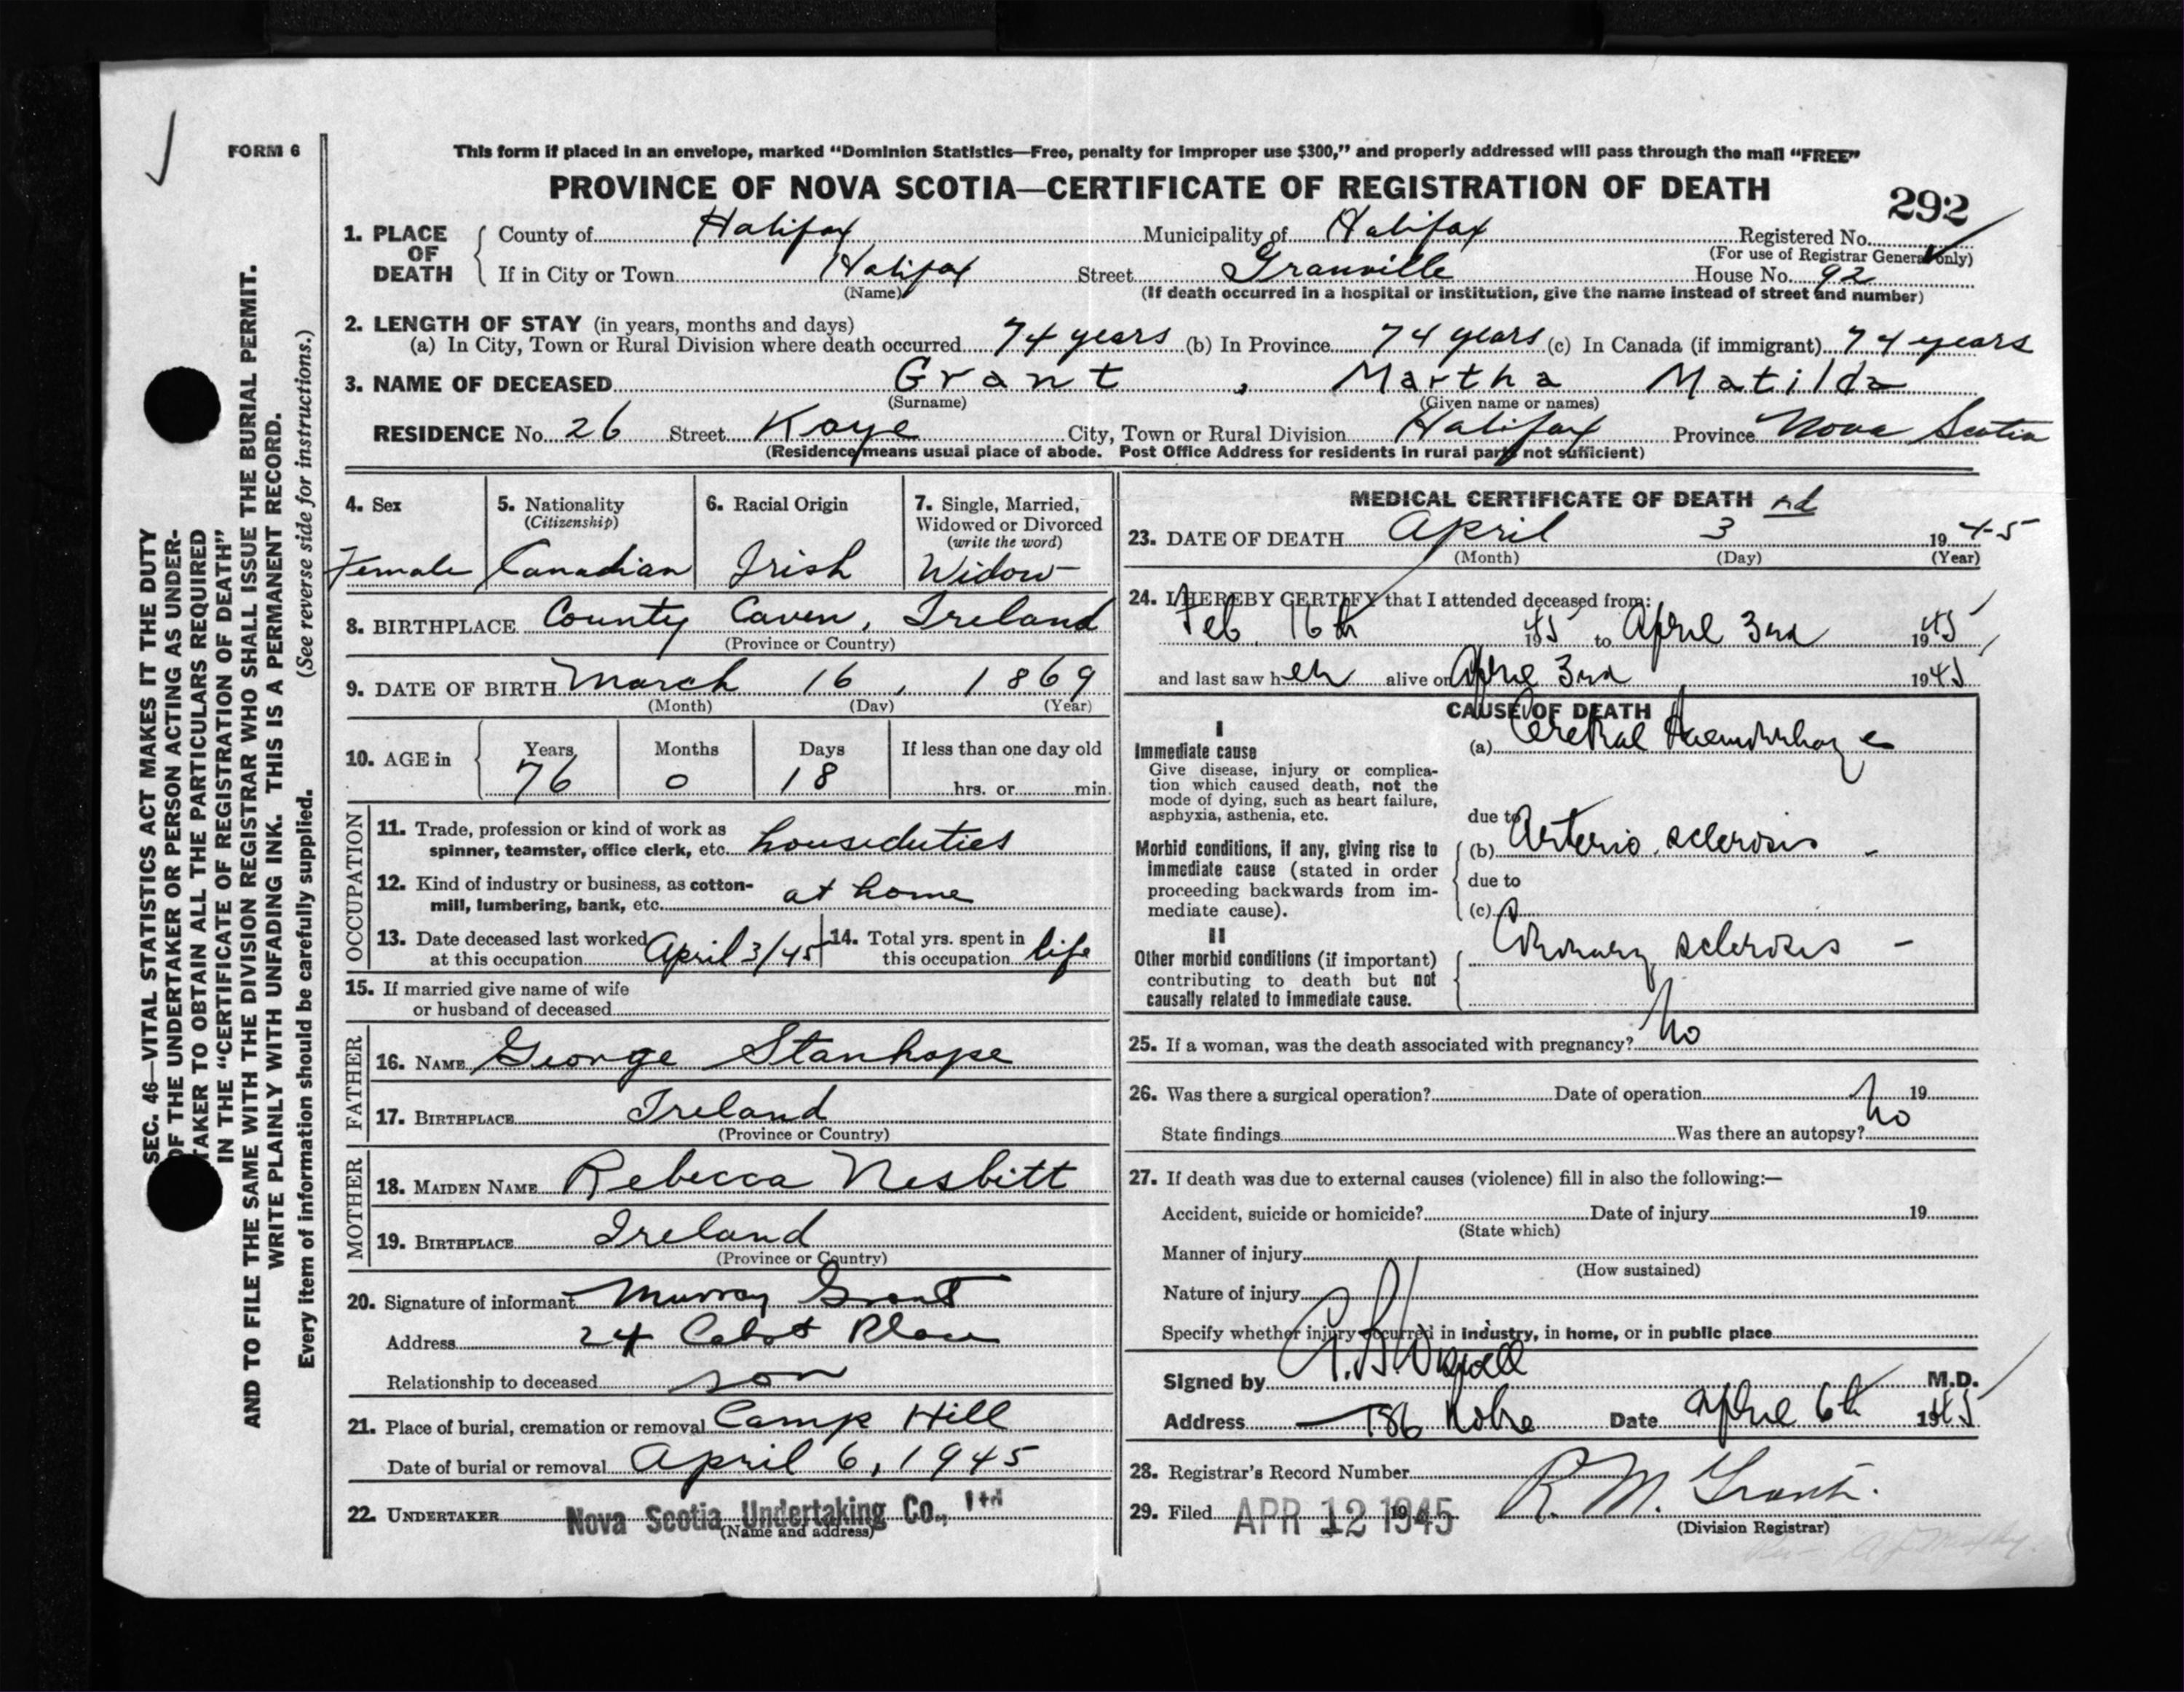 FORM 6
This form if placed in an envelope, marked “Dominion Statistics—Free, penalty for improper use $300,” and properly addressed will pass through the mail “FREE”
PROVINCE OF NOVA SCOTIA—CERTIFICATE OF REGISTRATION OF DEATH
292
1. PLACE OF DEATH
County of Halifax Municipality of Halifax Registered No.
(For use of Registrar General only)
If in City or Town Halifax Street Granville House No. 92
(Name) (If death occurred in a hospital or institution, give the name instead of street and number)
2. LENGTH OF STAY (in years, months and days)
(a) In City, Town or Rural Division where death occurred 74 years (b) In Province 74 years (c) In Canada (if immigrant) 74 years
3. NAME OF DECEASED Grant, Martha Matilda
(Surname) (Given name or names)
RESIDENCE No. 26 Street Kaye City, Town or Rural Division Halifax Province Nova Scotia
(Residence means usual place of abode. Post Office Address for residents in rural parts not sufficient)
4. Sex
Female
5. Nationality
(Citizenship)
Canadian
6. Racial Origin
Irish
7. Single, Married,
Widowed or Divorced
(write the word)
Widow
8. BIRTHPLACE County Caven, Ireland
(Province or Country)
9. DATE OF BIRTH March 16, 1869
(Month) (Day) (Year)
10. AGE in
Years Months Days If less than one day old
76 0 18 hrs. or min.
OCCUPATION
11. Trade, profession or kind of work as
spinner, teamster, office clerk, etc. houseduties
12. Kind of industry or business, as cotton-
mill, lumbering, bank, etc. at home
13. Date deceased last worked
at this occupation April 3/45
14. Total yrs. spent in
this occupation life
15. If married give name of wife
or husband of deceased
FATHER
16. NAME George Stanhope
17. BIRTHPLACE Ireland
(Province or Country)
MOTHER
18. MAIDEN NAME Rebecca Nesbitt
19. BIRTHPLACE Ireland
(Province or Country)
20. Signature of informant Murray Grant
Address 24 Cabot Place
Relationship to deceased son
21. Place of burial, cremation or removal Camp Hill
Date of burial or removal April 6, 1945
22. UNDERTAKER Nova Scotia Undertaking Co., Ltd
(Name and address)
MEDICAL CERTIFICATE OF DEATH
23. DATE OF DEATH April 3rd 1945
(Month) (Day) (Year)
24. I HEREBY CERTIFY that I attended deceased from:
Feb 16th 1945 to April 3rd 1945
and last saw her alive on April 3rd 1945
CAUSE OF DEATH
I
Immediate cause
Give disease, injury or complica-
tion which caused death, not the
mode of dying, such as heart failure,
asphyxia, asthenia, etc.
(a) Cerebral Haemorrhage
due to
Morbid conditions, if any, giving rise to
immediate cause (stated in order
proceeding backwards from im-
mediate cause).
(b) Arterio sclerosis -
due to
(c)
II
Other morbid conditions (if important)
contributing to death but not
causally related to immediate cause.
Coronary sclerosis -
25. If a woman, was the death associated with pregnancy? No
26. Was there a surgical operation? Date of operation 19
State findings Was there an autopsy? No
27. If death was due to external causes (violence) fill in also the following:—
Accident, suicide or homicide? Date of injury 19
(State which)
Manner of injury
(How sustained)
Nature of injury
Specify whether injury occurred in industry, in home, or in public place
Signed by M.D.
Address Date April 6th 1945
28. Registrar's Record Number
29. Filed APR 12 1945 19 R. M. Grant.
(Division Registrar)
SEC. 46—VITAL STATISTICS ACT MAKES IT THE DUTY
OF THE UNDERTAKER OR PERSON ACTING AS UNDER-
TAKER TO OBTAIN ALL THE PARTICULARS REQUIRED
IN THE “CERTIFICATE OF REGISTRATION OF DEATH”
AND TO FILE THE SAME WITH THE DIVISION REGISTRAR WHO SHALL ISSUE THE BURIAL PERMIT.
WRITE PLAINLY WITH UNFADING INK. THIS IS A PERMANENT RECORD.
Every item of information should be carefully supplied. (See reverse side for instructions.)